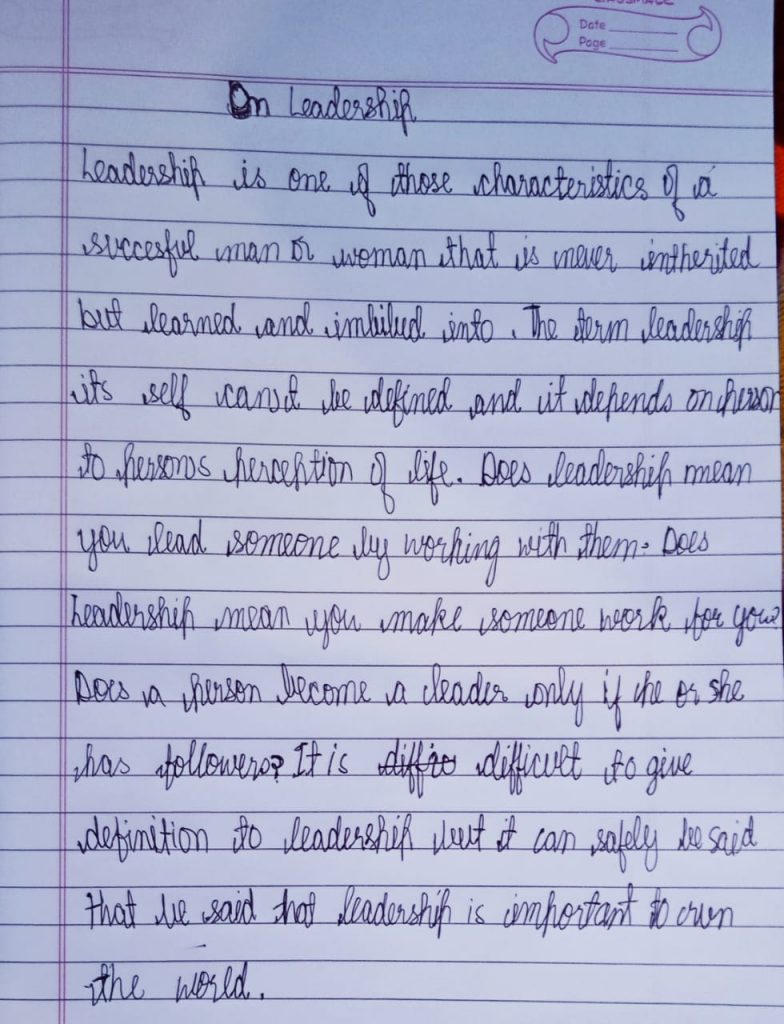 Date
Page
On Leadership
Leadership is one of those characteristics of a
succesful man or woman that is never intherited
but learned and imbibed into. The term leadership
its self can't be defined and it depends on person
to persons perception of life. Does leadership mean
you lead someone by working with them. Does
Leadership mean you make someone work for you?
Does a person become a leader only if he or she
has followers? It is difficult to give
definition to leadership but it can safely be said
that be said that leadership is important to
the world.